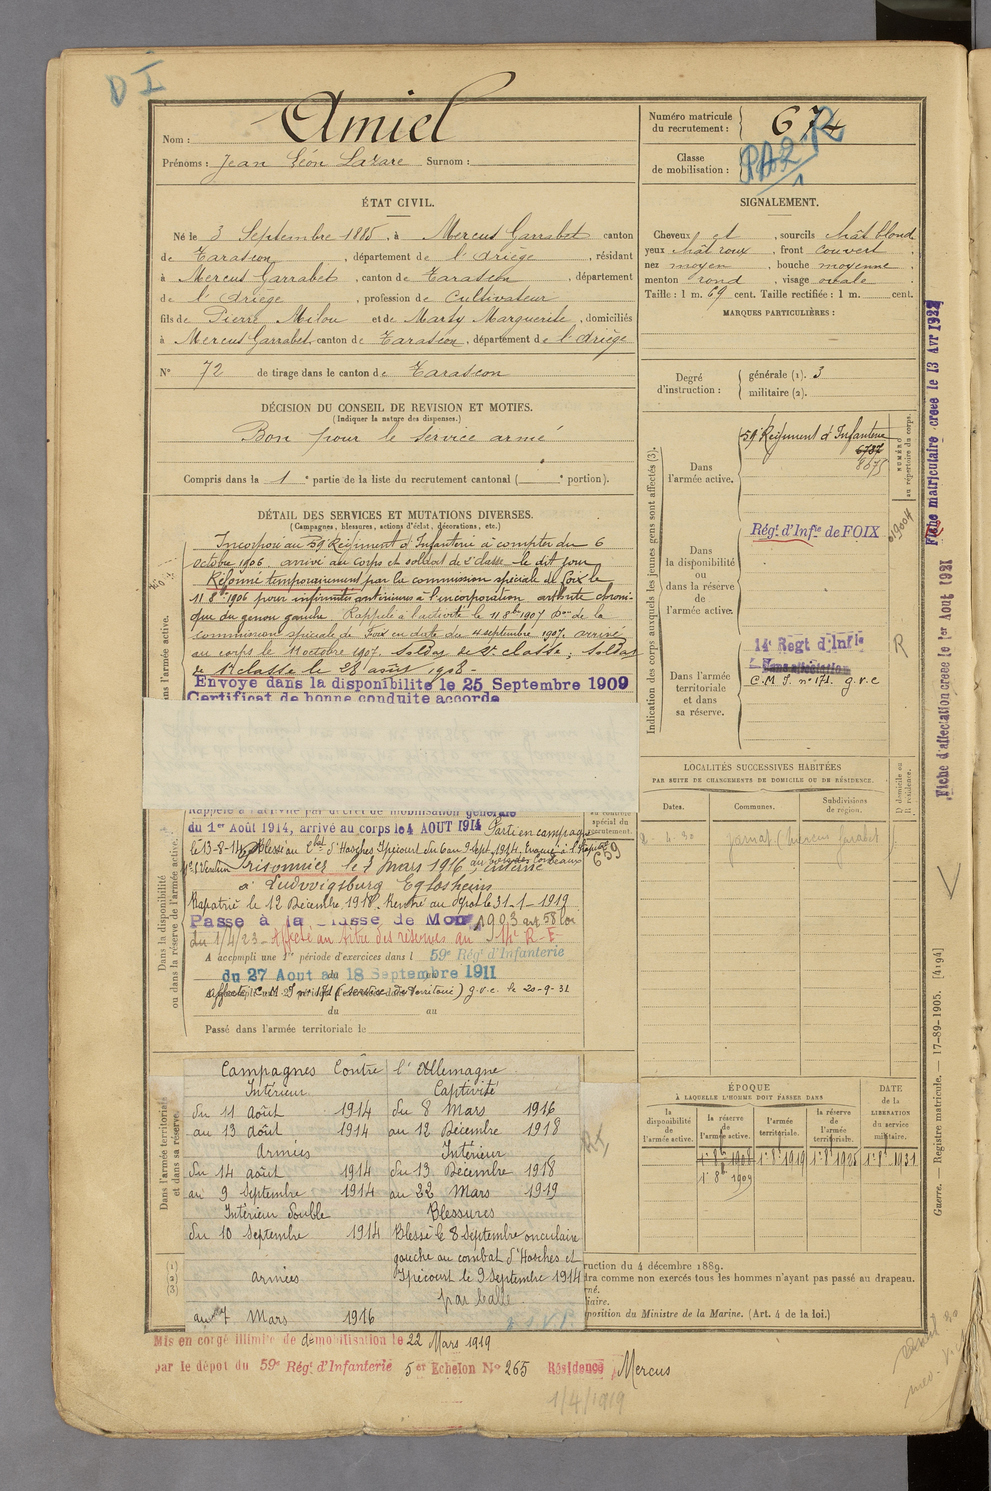 D I
Nom : Amiel
Prénoms : Jean Léon Lazare Surnom :
Numéro matricule
du recrutement : 674
Classe
de mobilisation :
PA2 R
1
ÉTAT CIVIL.
Né le 3 Septembre 1885, à Mercus Garrabet canton
de Tarascon, département de l'Ariège, résidant
à Mercus Garrabet, canton de Tarascon, département
de l'Ariège, profession de Cultivateur
fils de Pierre Milou et de Marty Marguerite, domiciliés
à Mercus Garrabet, canton de Tarascon, département de l'Ariège
N° 72 de tirage dans le canton de Tarascon
SIGNALEMENT.
Cheveux et , sourcils chât blond
yeux chât roux, front couvert
nez moyen, bouche moyenne
menton rond, visage ovale
Taille : 1 m. 69 cent. Taille rectifiée : 1 m. cent.
MARQUES PARTICULIÈRES :
Degré
d'instruction : générale (1). 3
militaire (2).
DÉCISION DU CONSEIL DE REVISION ET MOTIFS.
(Indiquer la nature des dispenses.)
Bon pour le service armé
Compris dans la 1e partie de la liste du recrutement cantonal ( e portion).
DÉTAIL DES SERVICES ET MUTATIONS DIVERSES.
(Campagnes, blessures, actions d'éclat, décorations, etc.)
Incorporé au 59 Régiment d'Infanterie à compter du 6
octobre 1906, arrivé au corps et soldat de 2e classe le dit jour
Réformé temporairement par la commission spéciale de Foix le
11 8bre 1906 pour infirmités antérieures à l'incorporation arthrite chroni-
que du genou gauche. Rappelé à l'activité le 11 8bre 1907 Don de la
commission spéciale de Foix en date du 4 septembre 1907, arrivé
au corps le 11 octobre 1907. Soldat de 2e classe; Soldat
de 1re classe le 28 août 1908 -
Envoyé dans la disponibilité le 25 Septembre 1909
Certificat de bonne conduite accordé
Rappelé à l'activité par décret de mobilisation générale
du 1er Août 1914, arrivé au corps le 4 AOUT 1914 Parti en campagne
le 13-8-14. Blessé au cbat d'Hasches Ypécourt du 6 au 9 sept. 1914. Evacué à l'hôpital
Prisonnier le 8 mars 1916, interné
à Ludwigsburg Eglosheim
Rapatrié le 12 Décembre 1918. Rentré au dépôt le 31-1-1919
Passé à la Classe de Mon 1903 art 58 loi
du 1/4/23 - Affecté au titre des réserves au 14e R-I
A accompli une 1re période d'exercices dans l 59e Régt d'Infanterie
du 27 Aout au 18 Septembre 1911
affecté C.M.I n° 171 (service de Territoire) g.v.c. le 20-9-31
du au
Passé dans l'armée territoriale le
l'armée active.
Dans la disponibilité
ou dans la réserve de l'armée active.
Dans l'armée territoriale
et dans sa réserve.
(1)
(2)
(3)
Indication des corps auxquels les jeunes gens sont affectés (3).
Dans
l'armée active.
59 Régiment d'Infanterie
6787
8675
NUMÉRO
au répertoire du corps.
Dans
la disponibilité
ou
dans la réserve
de
l'armée active.
Régt d'Infie de FOIX
019004
Dans l'armée
territoriale
et dans
sa réserve.
14e Regt d'Infie
Sans affectation
C.M.I. n° 171. g.v.c
R
LOCALITÉS SUCCESSIVES HABITÉES
PAR SUITE DE CHANGEMENTS DE DOMICILE OU DE RÉSIDENCE.
D domicile ou
R résidence.
Dates. Communes. Subdivisions
de région.
2-4-30 Jarnat (Mercus Garrabet)
au contrôle
spécial du
recrutement.
659
ÉPOQUE
À LAQUELLE L'HOMME DOIT PASSER DANS
DATE
de la
LIBÉRATION
du service
militaire.
la
disponibilité
de
l'armée active.
la réserve
de
l'armée active.
l'armée
territoriale.
la réserve
de
l'armée
territoriale.
1er 8b 1908 1er 8b 1919 1er 8b 1925 1er 8b 1931
1er 8b 1909
Campagnes Contre l'Allemagne
Intérieur
du 11 Août 1914
au 13 Août 1914
Armées
du 14 août 1914
au 9 Septembre 1914
Intérieur double
du 10 Septembre 1914
armées
au 7 Mars 1916
Captivité
du 8 Mars 1916
au 12 Décembre 1918
Intérieur
du 13 Décembre 1918
au 22 Mars 1919
Blessures
Blessé le 8 Septembre onculaire
gauche au combat d'Hasches et
Ypécourt le 9 Septembre 1914
par balle
ruction du 4 décembre 1889.
dra comme non exercés tous les hommes n'ayant pas passé au drapeau.
né.
iaire.
position du Ministre de la Marine. (Art. 4 de la loi.)
Mis en congé illimité de démobilisation le 22 Mars 1919
par le dépôt du 59e Régt d'Infanterie 5er Echelon N° 265 Résidence Mercus
1/4/1919
Fiche matriculaire créée le 13 Avr 1932
Fiche d'affectation créée le 1er Aout 1931
Guerre. — Registre matricule. — 17-89-1905. [4194]